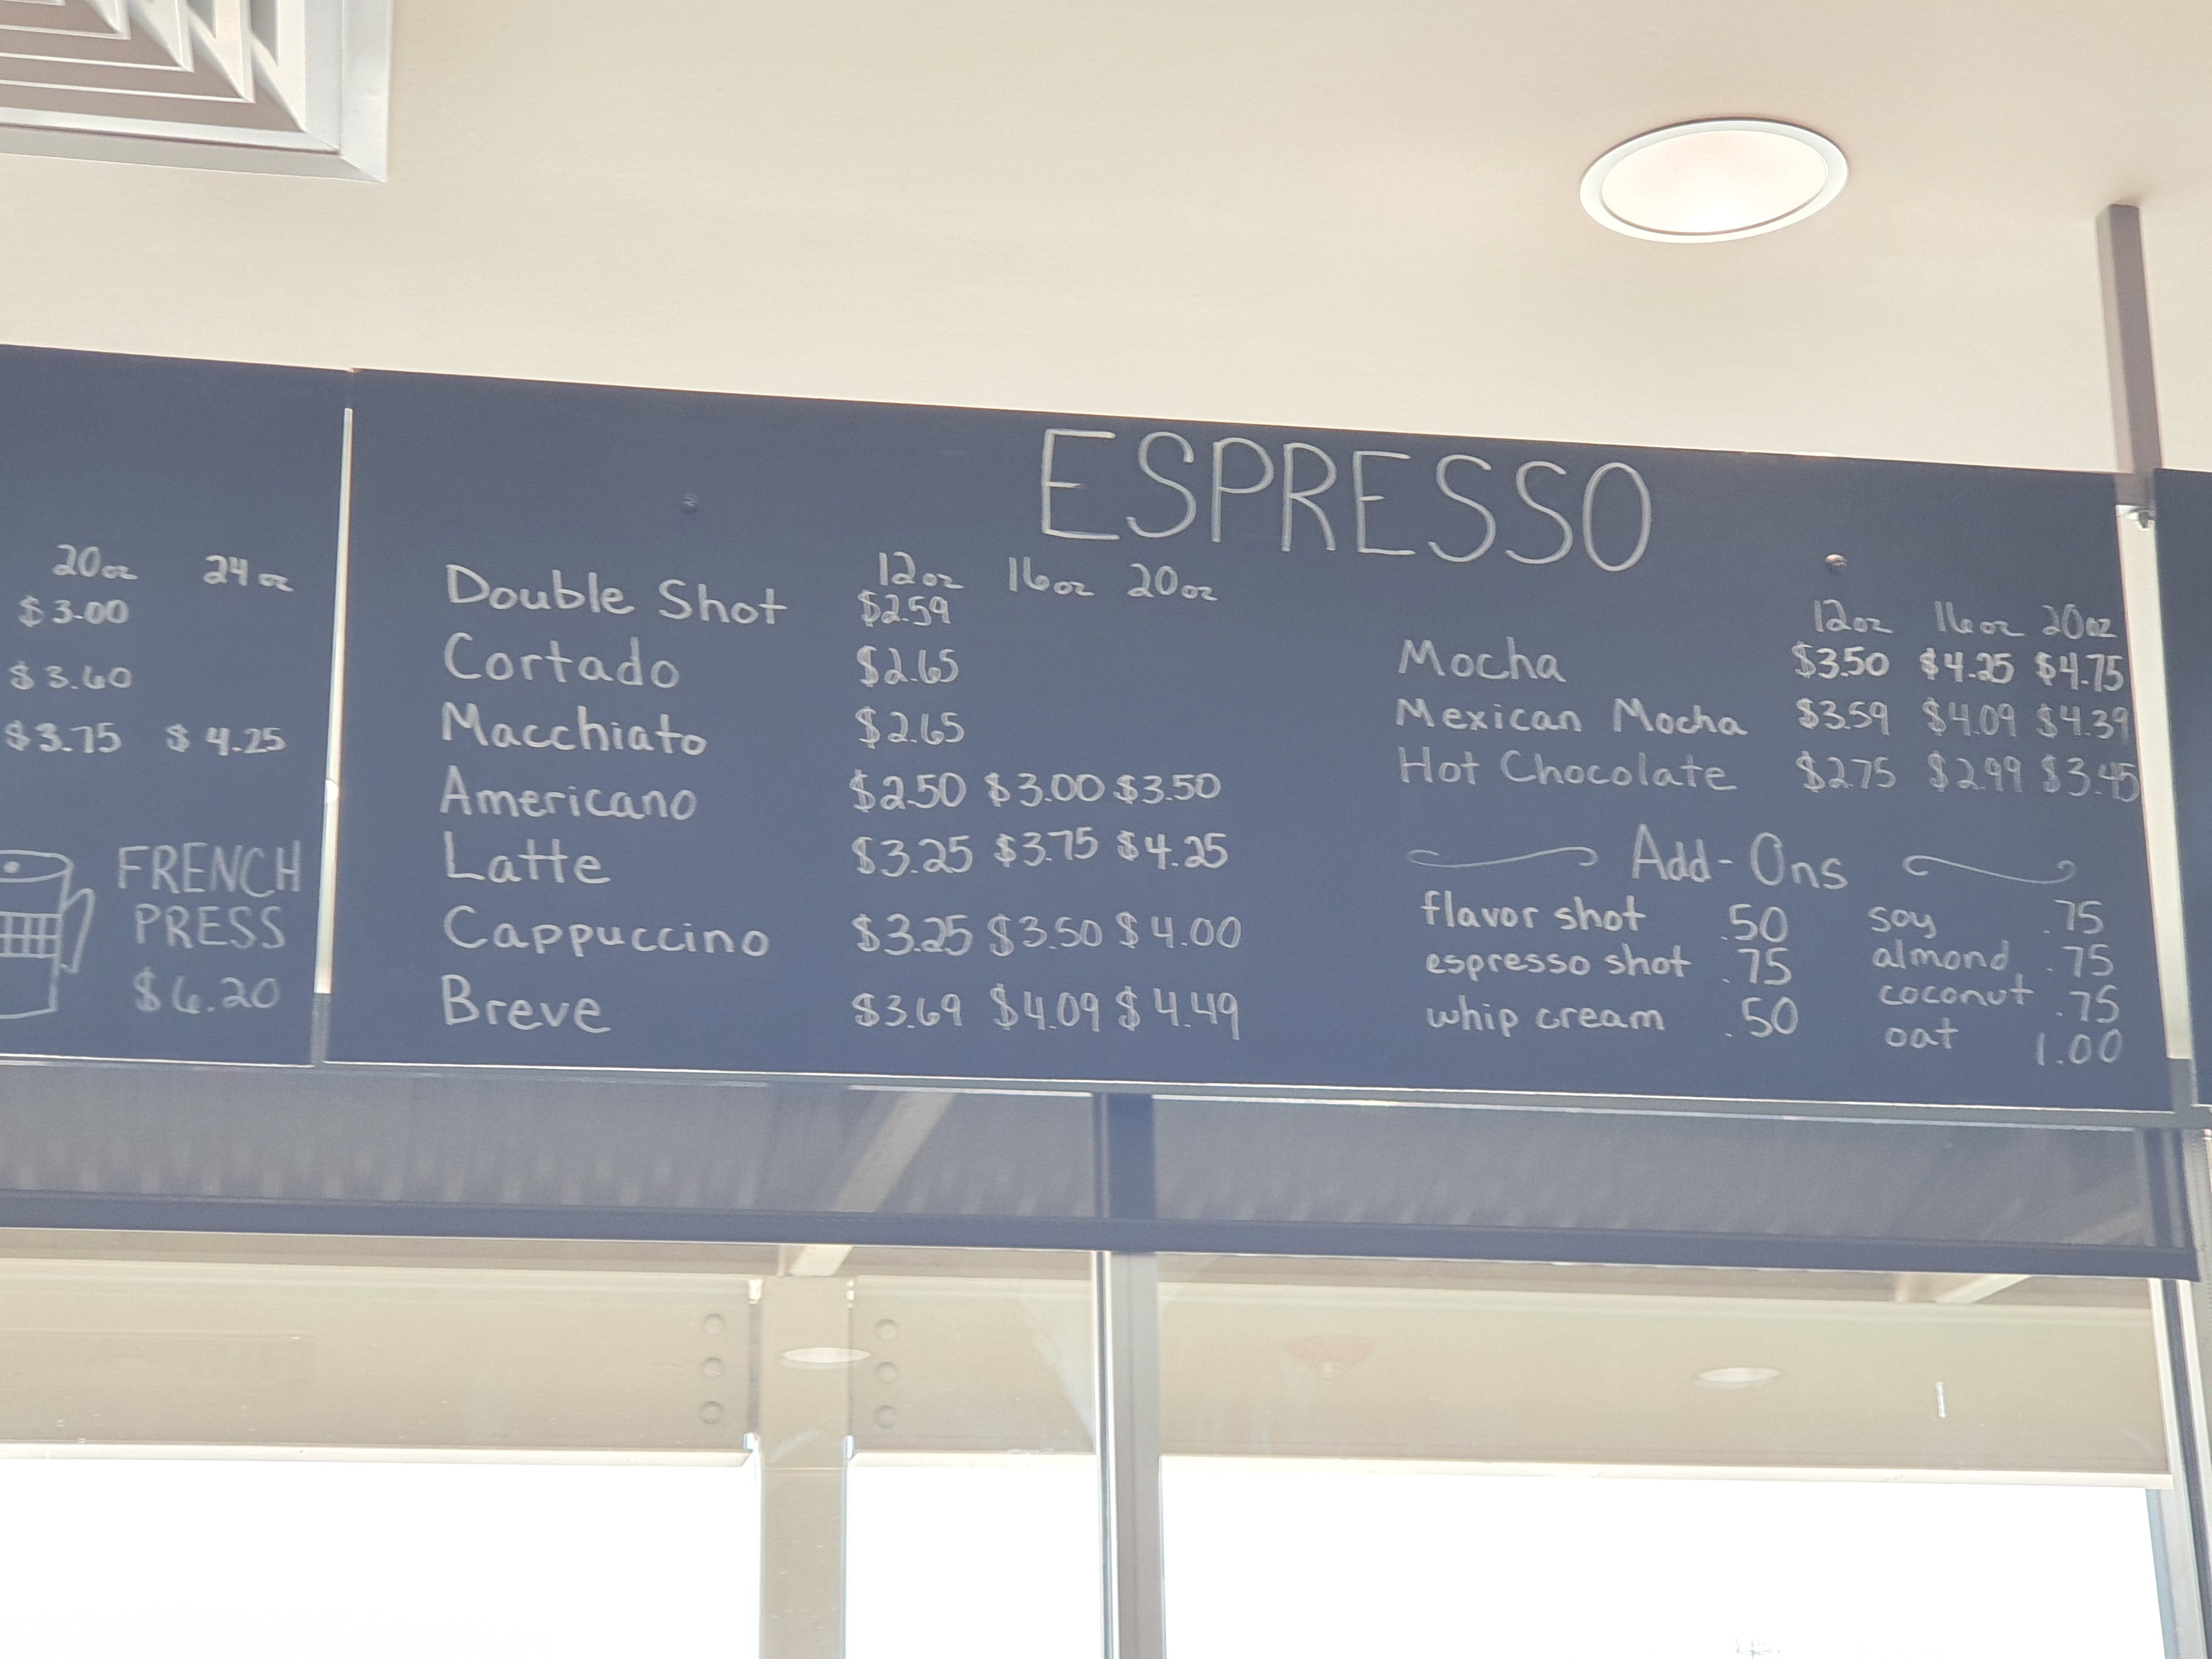 20oz 24oz
$3.00
$3.60
$3.75 $4.25
FRENCH
PRESS
$6.20
ESPRESSO
12oz 16oz 20oz
Double Shot $2.59
Cortado $2.65
Macchiato $2.65
Americano $2.50 $3.00 $3.50
Latte $3.25 $3.75 $4.25
Cappuccino $3.25 $3.50 $4.00
Breve $3.69 $4.09 $4.49
12oz 16oz 20oz
Mocha $3.50 $4.25 $4.75
Mexican Mocha $3.59 $4.09 $4.39
Hot Chocolate $2.75 $2.99 $3.45
Add-Ons
flavor shot .50
espresso shot .75
whip cream .50
soy .75
almond .75
coconut .75
oat 1.00